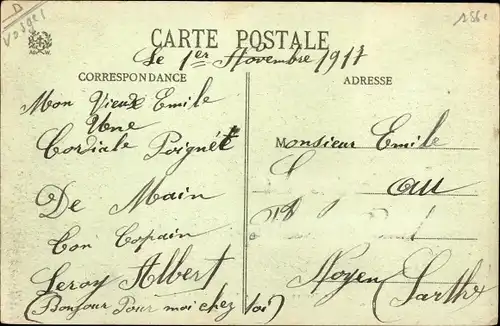 Vosges
CARTE POSTALE
Le 1er Novembre 1917
CORRESPONDANCE
ADRESSE
Mon Vieux Emile
Une
Cordiale Poignét
De Main
Ton Copain
Leroy Albert
(Bonjour Pour moi chez toi)
Monsieur Emile
Noyen (Sarthe